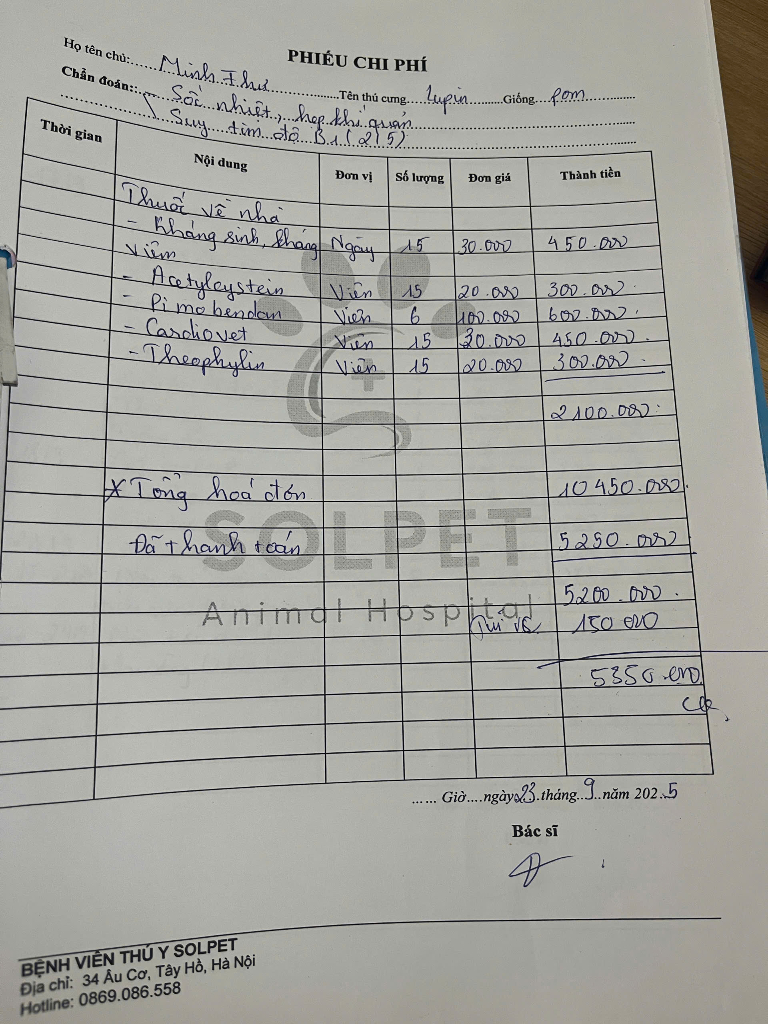 PHIẾU CHI PHÍ
Họ tên chủ:.....Minh Thư..........Tên thú cưng....Lupin.......Giống...pom..........
Chẩn đoán:.....Sốc nhiệt, hẹp khí quản
Suy tim độ B1 (2/5)
Thời gian Nội dung Đơn vị Số lượng Đơn giá Thành tiền
Thuốc về nhà
- Kháng sinh, kháng viêm Ngày 15 30.000 450.000
- Acetylcystein Viên 15 20.000 300.000
- Pimobendan Viên 6 100.000 600.000
- Cardiovet Viên 15 30.000 450.000
- Theophylin Viên 15 20.000 300.000
2100.000
* Tổng hoá đơn 10 450.000
Đã thanh toán 5250.000
5200.000
150 000
5350.000
CK
SOLPET
Animal Hospital
...... Giờ....ngày 23.tháng..9..năm 2025
Bác sĩ
BỆNH VIÊN THÚ Y SOLPET
Địa chỉ: 34 Âu Cơ, Tây Hồ, Hà Nội
Hotline: 0869.086.558